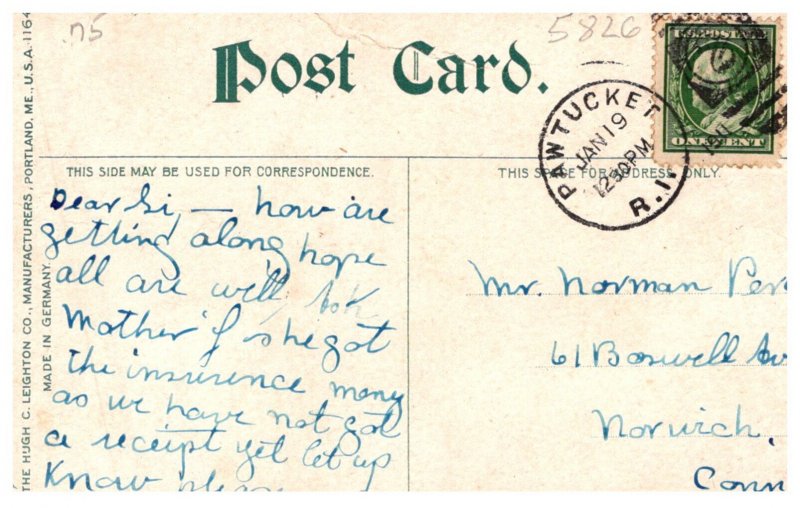 n5
5826
Post Card.
U.S. POSTAGE
ONE CENT
PAWTUCKET
JAN 19
12-30PM
R.I.
THIS SIDE MAY BE USED FOR CORRESPONDENCE.
THIS SPACE FOR ADDRESS ONLY.
THE HUGH C. LEIGHTON CO., MANUFACTURERS, PORTLAND, ME., U.S.A. 1164
MADE IN GERMANY.
Dear Gi, — how are
getting along hope
all are well, Ask
Mother if she got
the insurence money
as we have not got
a receipt yet let up
Know please
Mr. Norman Per
61 Boswell Av
Norwich,
Conn